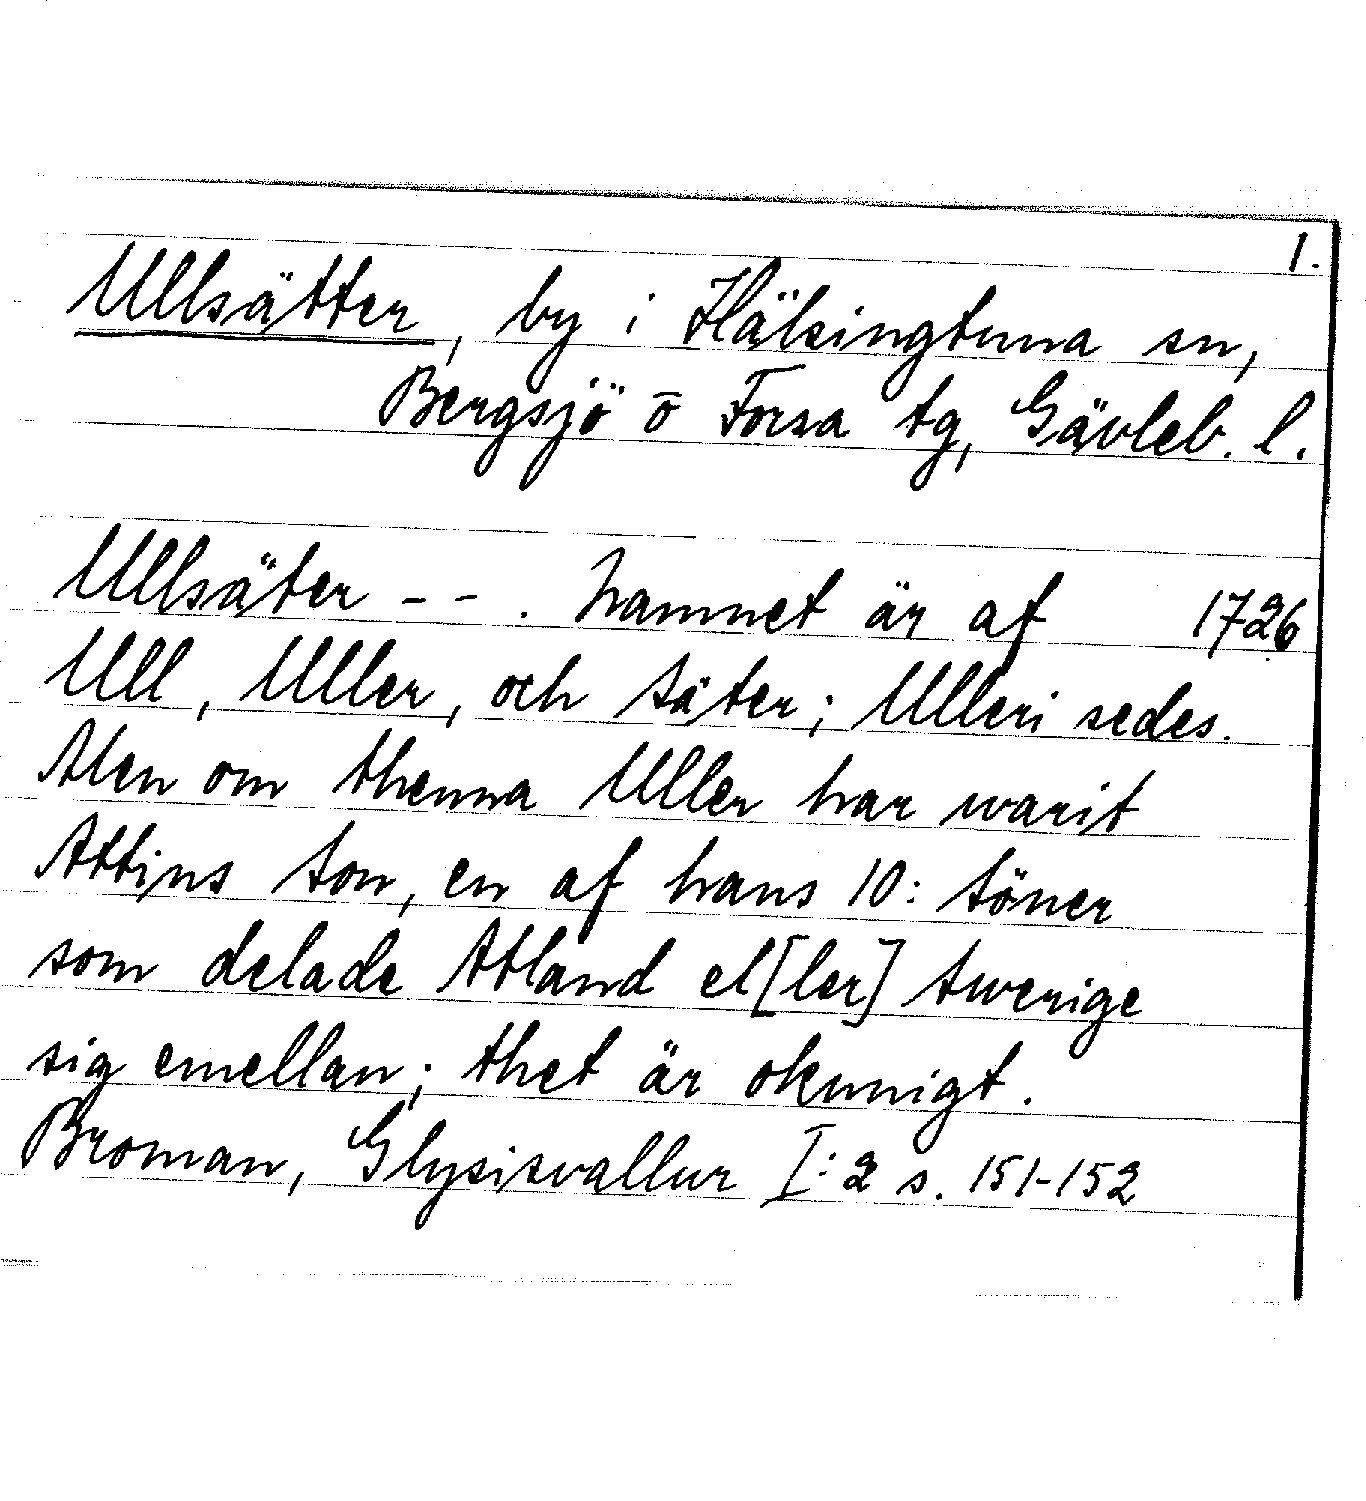 1.
Ullsätter, by i Hälsingtuna sn,
Bergsjö o Forsa tg, Gävleb. l.
Ullsäter - - . Namnet är af 1726
Ull, Uller, och Säter; Ulleri sedes.
Men om thenna Uller har warit
Attins Son, en af hans 10: Söner
som delade Atland el[ler] Swerige
sig emellan; thet är okunnigt.
Broman, Glysisvallur I:2 s. 151-152